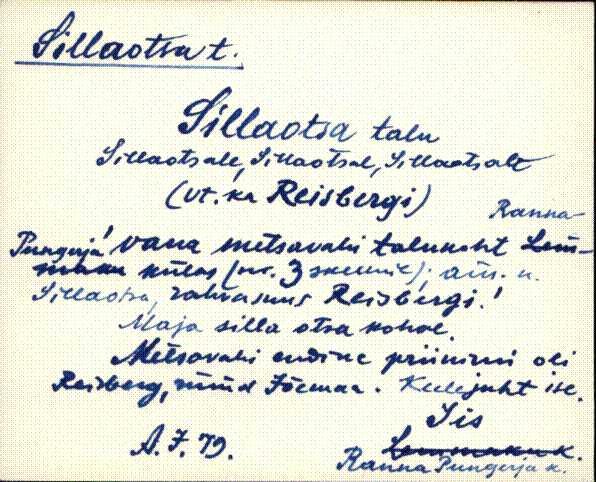 Sillaotsa t.
Sillaotsa talu
Sillaotsale, Sillaotsal, Sillaotsalt
(vt. ka Reisbergi)
Ranna-
Pungerja! vana metsavahi talukoht Lem-
maku külas (nr. 3 skeemil); am. n.
Sillaotsa, rahvasuus Reisbergi!
Maja silla otsa kohal.
Metsavahi endine priinimi oli
Reisberg, nüüd Jõemaa. Keelejuht ise.
Iis
Lemmaku k.
A. J. 79.
Ranna Pungerja k.